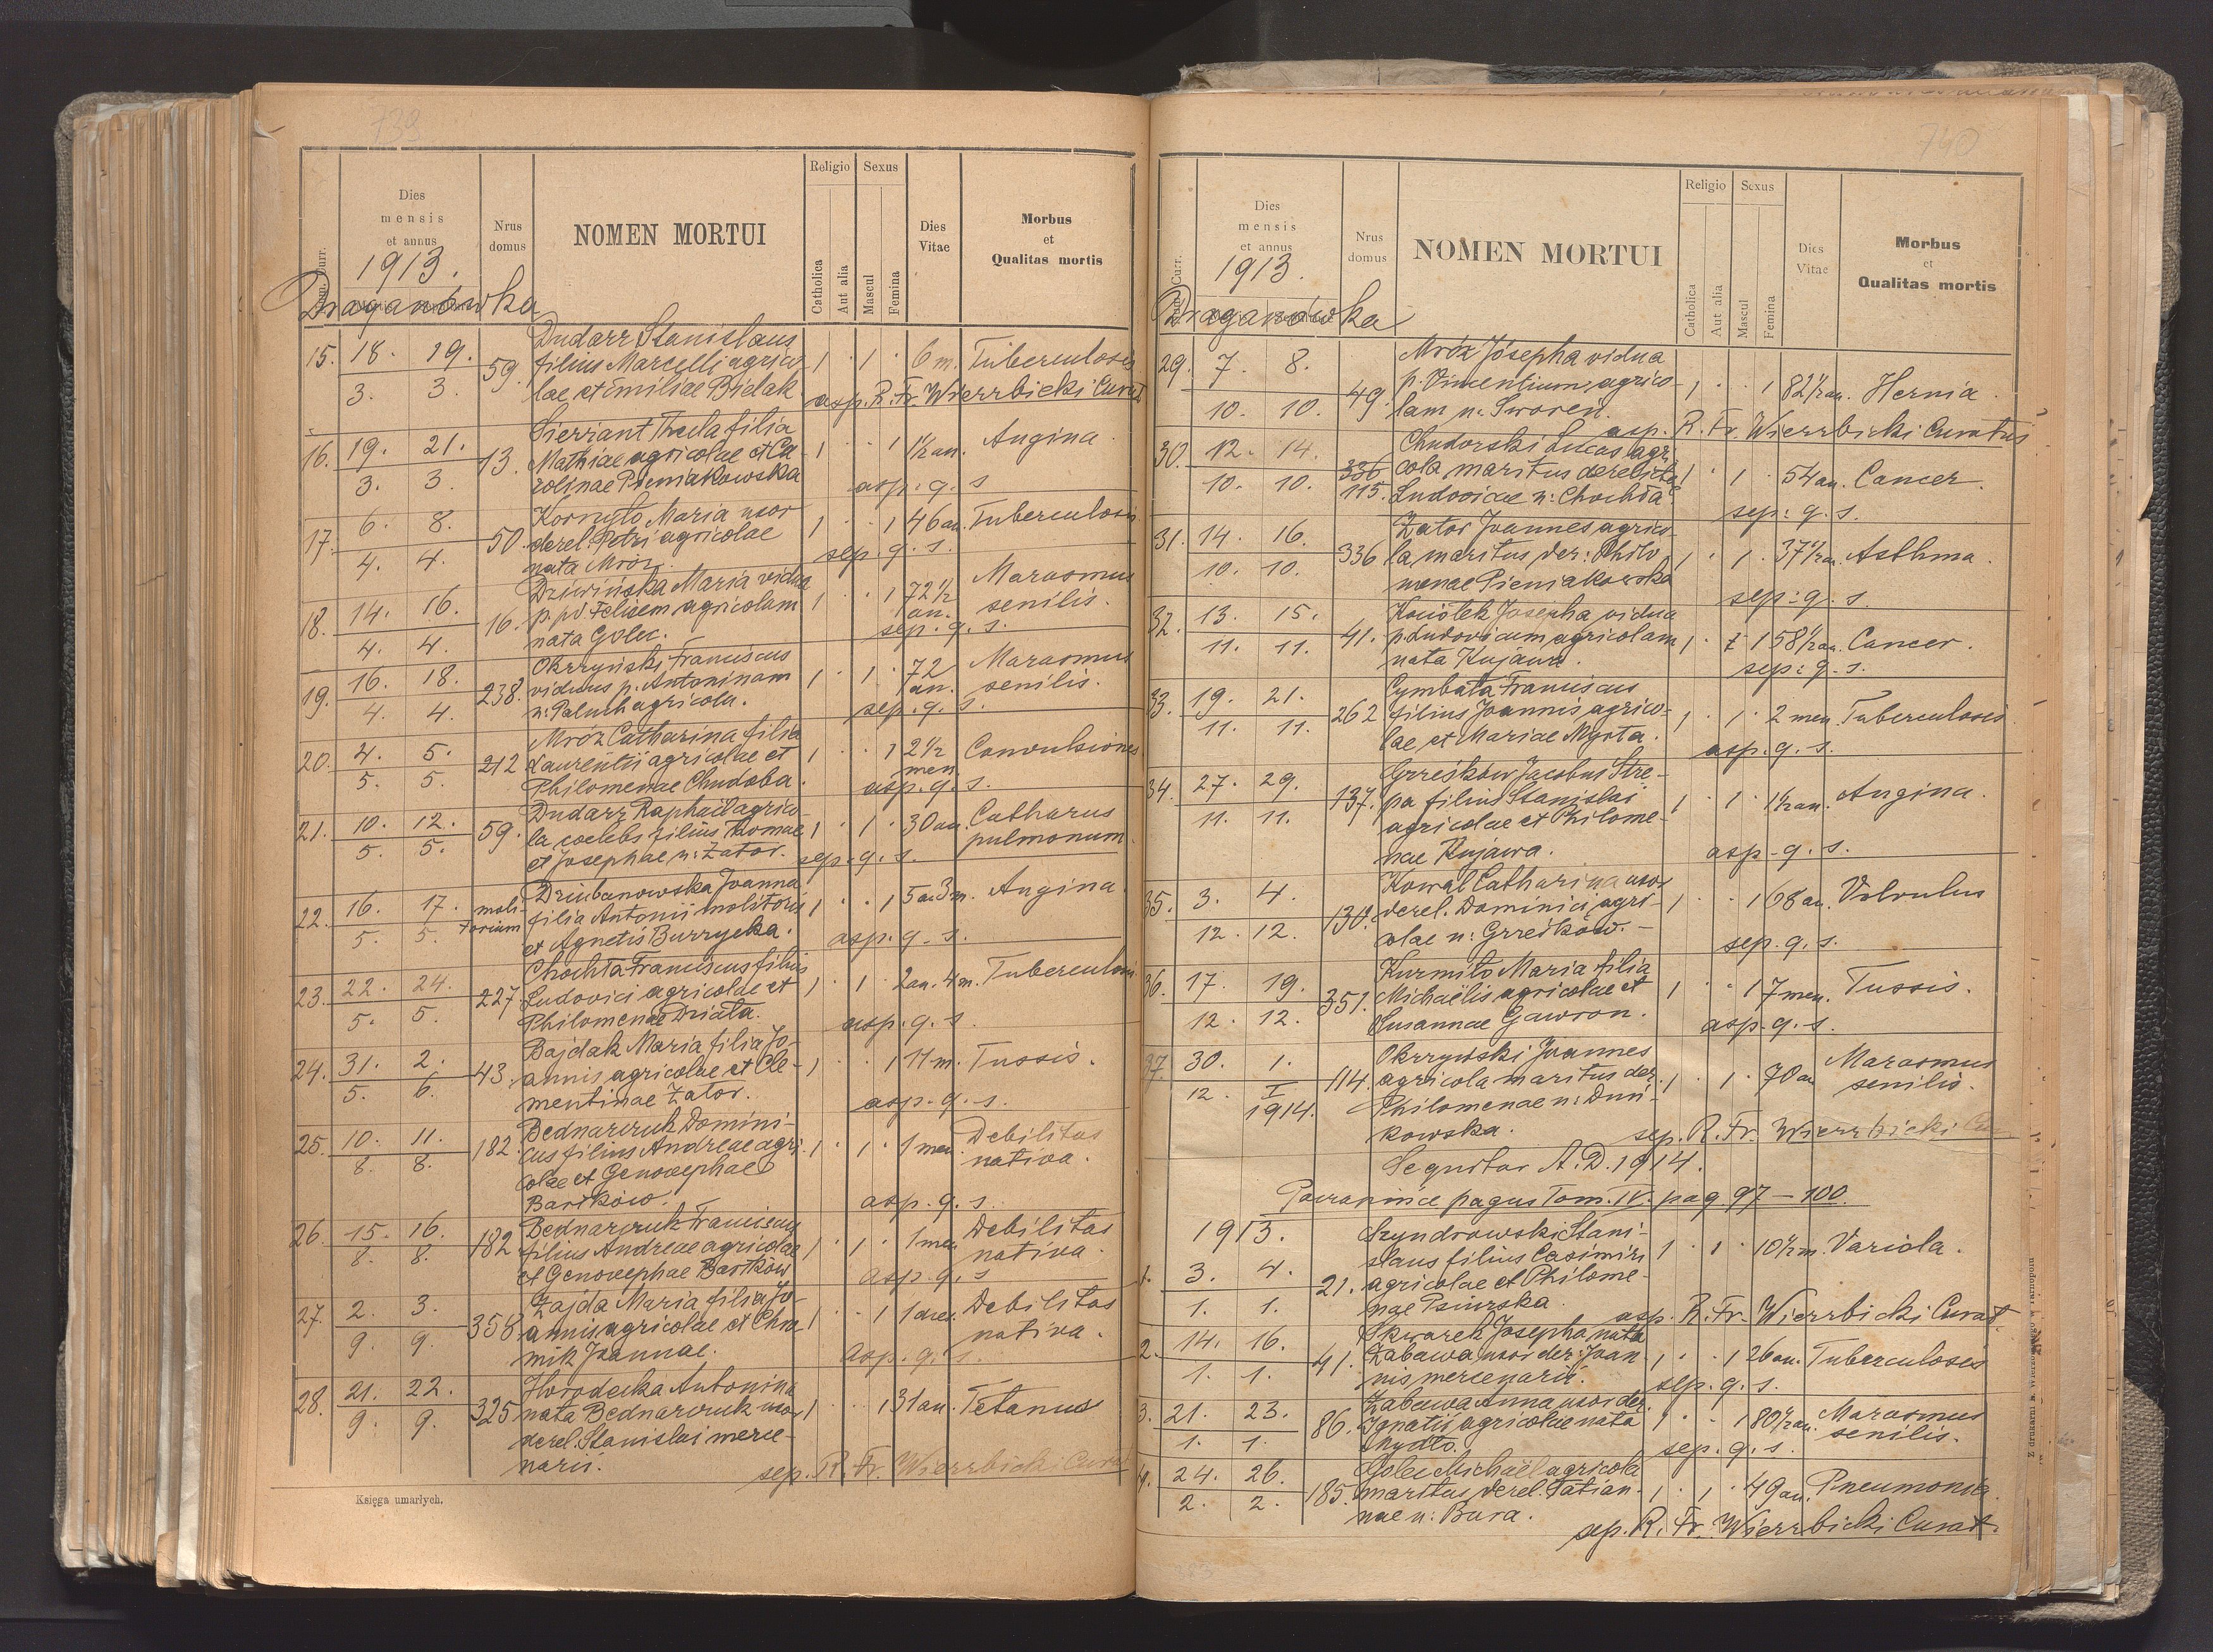 739
Dies
mensis
et annus
1913.
Nrus
domus
NOMEN MORTUI
Religio
Catholica
Aut alia
Sexus
Mascul
Femina
Dies
Vitae
Morbus
et
Qualitas mortis
Draganówka
15. 18. 19. 59. Dudarz Stanislaus
3. 3. filius Marcelli agrico- 1 · 1 · 6 m. Tuberculosis
lae et Emiliae Bielak
asp. R. Fr. Wierzbicki Curat
16. 19. 21. 13. Sierżant Thecla filia
3. 3. Mathiae agricolae et Ca- 1 · · 1 1½ an. Angina.
rolinae Pieniakowska
asp. q. s
17. 6. 8. 50. Kornyło Maria uxor
4. 4. derel. Petri agricolae 1 · · 1 46 an. Tuberculosis
nata Mróz.
sep. q. s.
18. 14. 16. 16. Dziwińska Maria vidua
4. 4. p. pd Felicem agricolam 1 · · 1 72½ an. Marasmus
nata Golec. senilis.
sep. q. s.
19. 16. 18. 238. Okrzyński Franciscus
4. 4. viduus p. Antoninam 1 · 1 · 72 an. Marasmus
n: Paluch agricola. senilis.
sep. q. s.
20. 4. 5. 212 Mróz Catharina filia
5. 5. Laurentii agricolae et 1 · · 1 2½ men. Convulsiones
Philomenae Chudoba.
asp. q. s.
21. 10. 12. 59. Dudarz Raphaël agrico-
5. 5. la coelebs filius Thomae 1 · 1 · 30 an. Catharus
et Josephae n: Zator. pulmonum
sep. q. s.
22. 16. 17. moli- Dziubanowska Joanna
5. 5. torium filia Antonii molitoris 1 · · 1 5 an 3 m. Angina.
et Agnetis Burzycka.
asp. q. s.
23. 22. 24. 227. Chochta Franciscus filius
5. 5. Ludovici agricolae et 1 · 1 · 2 an. 4 m. Tuberculosis
Philomenae Dziata.
asp. q. s.
24. 31. 2. 43. Bajdak Maria filia Jo-
5. 6. annis agricolae et Cle- 1 · · 1 11 m. Tussis.
mentinae Zator.
asp. q. s.
25. 10. 11. 182. Bednarczuk Domini-
8. 8. cus filius Andreae agri- 1 · 1 · 1 men. Debilitas
colae et Genovephae nativa.
Bartków.
asp. q. s.
26. 15. 16. 182 Bednarczuk Franciscus
8. 8. filius Andreae agricolae 1 · 1 · 1 men Debilitas
et Genovephae Bartków nativa.
asp. q. s
27. 2. 3. 358. Zajda Maria filia Jo-
9. 9. annis agricolae et Chro 1 · · 1 1 dies. Debilitas
mik Joannae. nativa.
asp. q. s.
28. 21. 22. 325 Horodecka Antonina
9. 9. nata Bednarczuk uxor 1 · · 1 31 an. Tetanus
derel. Stanislai merce-
narii.
sep. R. Fr. Wierzbicki Curat
Księga umarłych.
740
Dies
mensis
et annus
1913.
Nrus
domus
NOMEN MORTUI
Religio
Catholica
Aut alia
Sexus
Mascul
Femina
Dies
Vitae
Morbus
et
Qualitas mortis
Draganówka
29. 7. 8. 49. Mróz Josepha vidua
10. 10. p. Vincentium agrico- 1 · · 1 82½ an. Hernia.
lam n: Sworeń.
asp. R. Fr. Wierzbicki Curatus
30. 12. 14. 336 Chudorski Lucas agri-
10. 10. 115. cola maritus derelictae 1 · 1 · 54 an. Cancer.
Ludovicae n: Chochta
sep: q. s.
31. 14. 16. 336 Zator Joannes agrico-
10. 10. la maritus der: Philo 1 · 1 · 37½ an. Asthma.
menae Pieniakowska
sep: q. s.
32. 13. 15. 41. Kociołek Josepha vidua
11. 11. p. Ludovicum agricolam 1 · 1 58½ an. Cancer.
nata Kujawa.
sep: q. s.
33. 19. 21. 262 Cymbała Franciscus
11. 11. filius Joannis agrico- 1 · 1 · 2 men. Tuberculosis
lae et Mariae Myrta.
asp. q. s.
34. 27. 29. 137. Grześków Jacobus Strе-
11. 11. pa filius Stanislai 1 · 1 · 1½ an. Angina.
agricolae et Philome-
nae Kujawa.
asp. q. s.
35. 3. 4. 130. Kowal Catharina uxor
12. 12. derel. Dominici agri- 1 · · 1 68 an. Volvulus
colae n: Grześków.
sep. q. s.
36. 17. 19. 351. Kurmiło Maria filia
12. 12. Michaëlis agricolae et 1 · · 1 7 men. Tussis.
Susannae Gawron.
asp. q. s.
37. 30. 1. 114. Okrzyński Joannes
12. I 1914. agricola maritus der. 1 · 1 · 70 an Marasmus
Philomenae n: Duni- senilis.
kowska.
sep. R. Fr. Wierzbicki Cu
Sequitur A. D. 1914.
Poczapińce pagus Tom. IV. pag 97 – 100.
1913. Szyndrowski Stani-
1. 3. 4. 21. slaus filius Casimiri 1 · 1 · 10½ m. Variola.
1. 1. agricolae et Philome-
nae Psiurska.
asp. R. Fr. Wierzbicki Curat.
2. 14. 16. 41. Skwarek Josepha nata
1. 1. Zabawa uxor der: Joan- 1 · · 1 26 an. Tuberculosis
nis mercenarii.
sep. q. s.
3. 21. 23. 86. Zabawa Anna uxor der.
1. 1. Ignatii agricolae nata 1 · · 1 80½ an. Marasmus
Mydło. senilis.
sep. q. s.
4. 24. 26. 185. Golec Michaël agricola
2. 2. maritus derel. Tatian- 1 · 1 · 49 an. Pneumonia
nae n: Bura.
sep. R. Fr. Wierzbicki Curat.